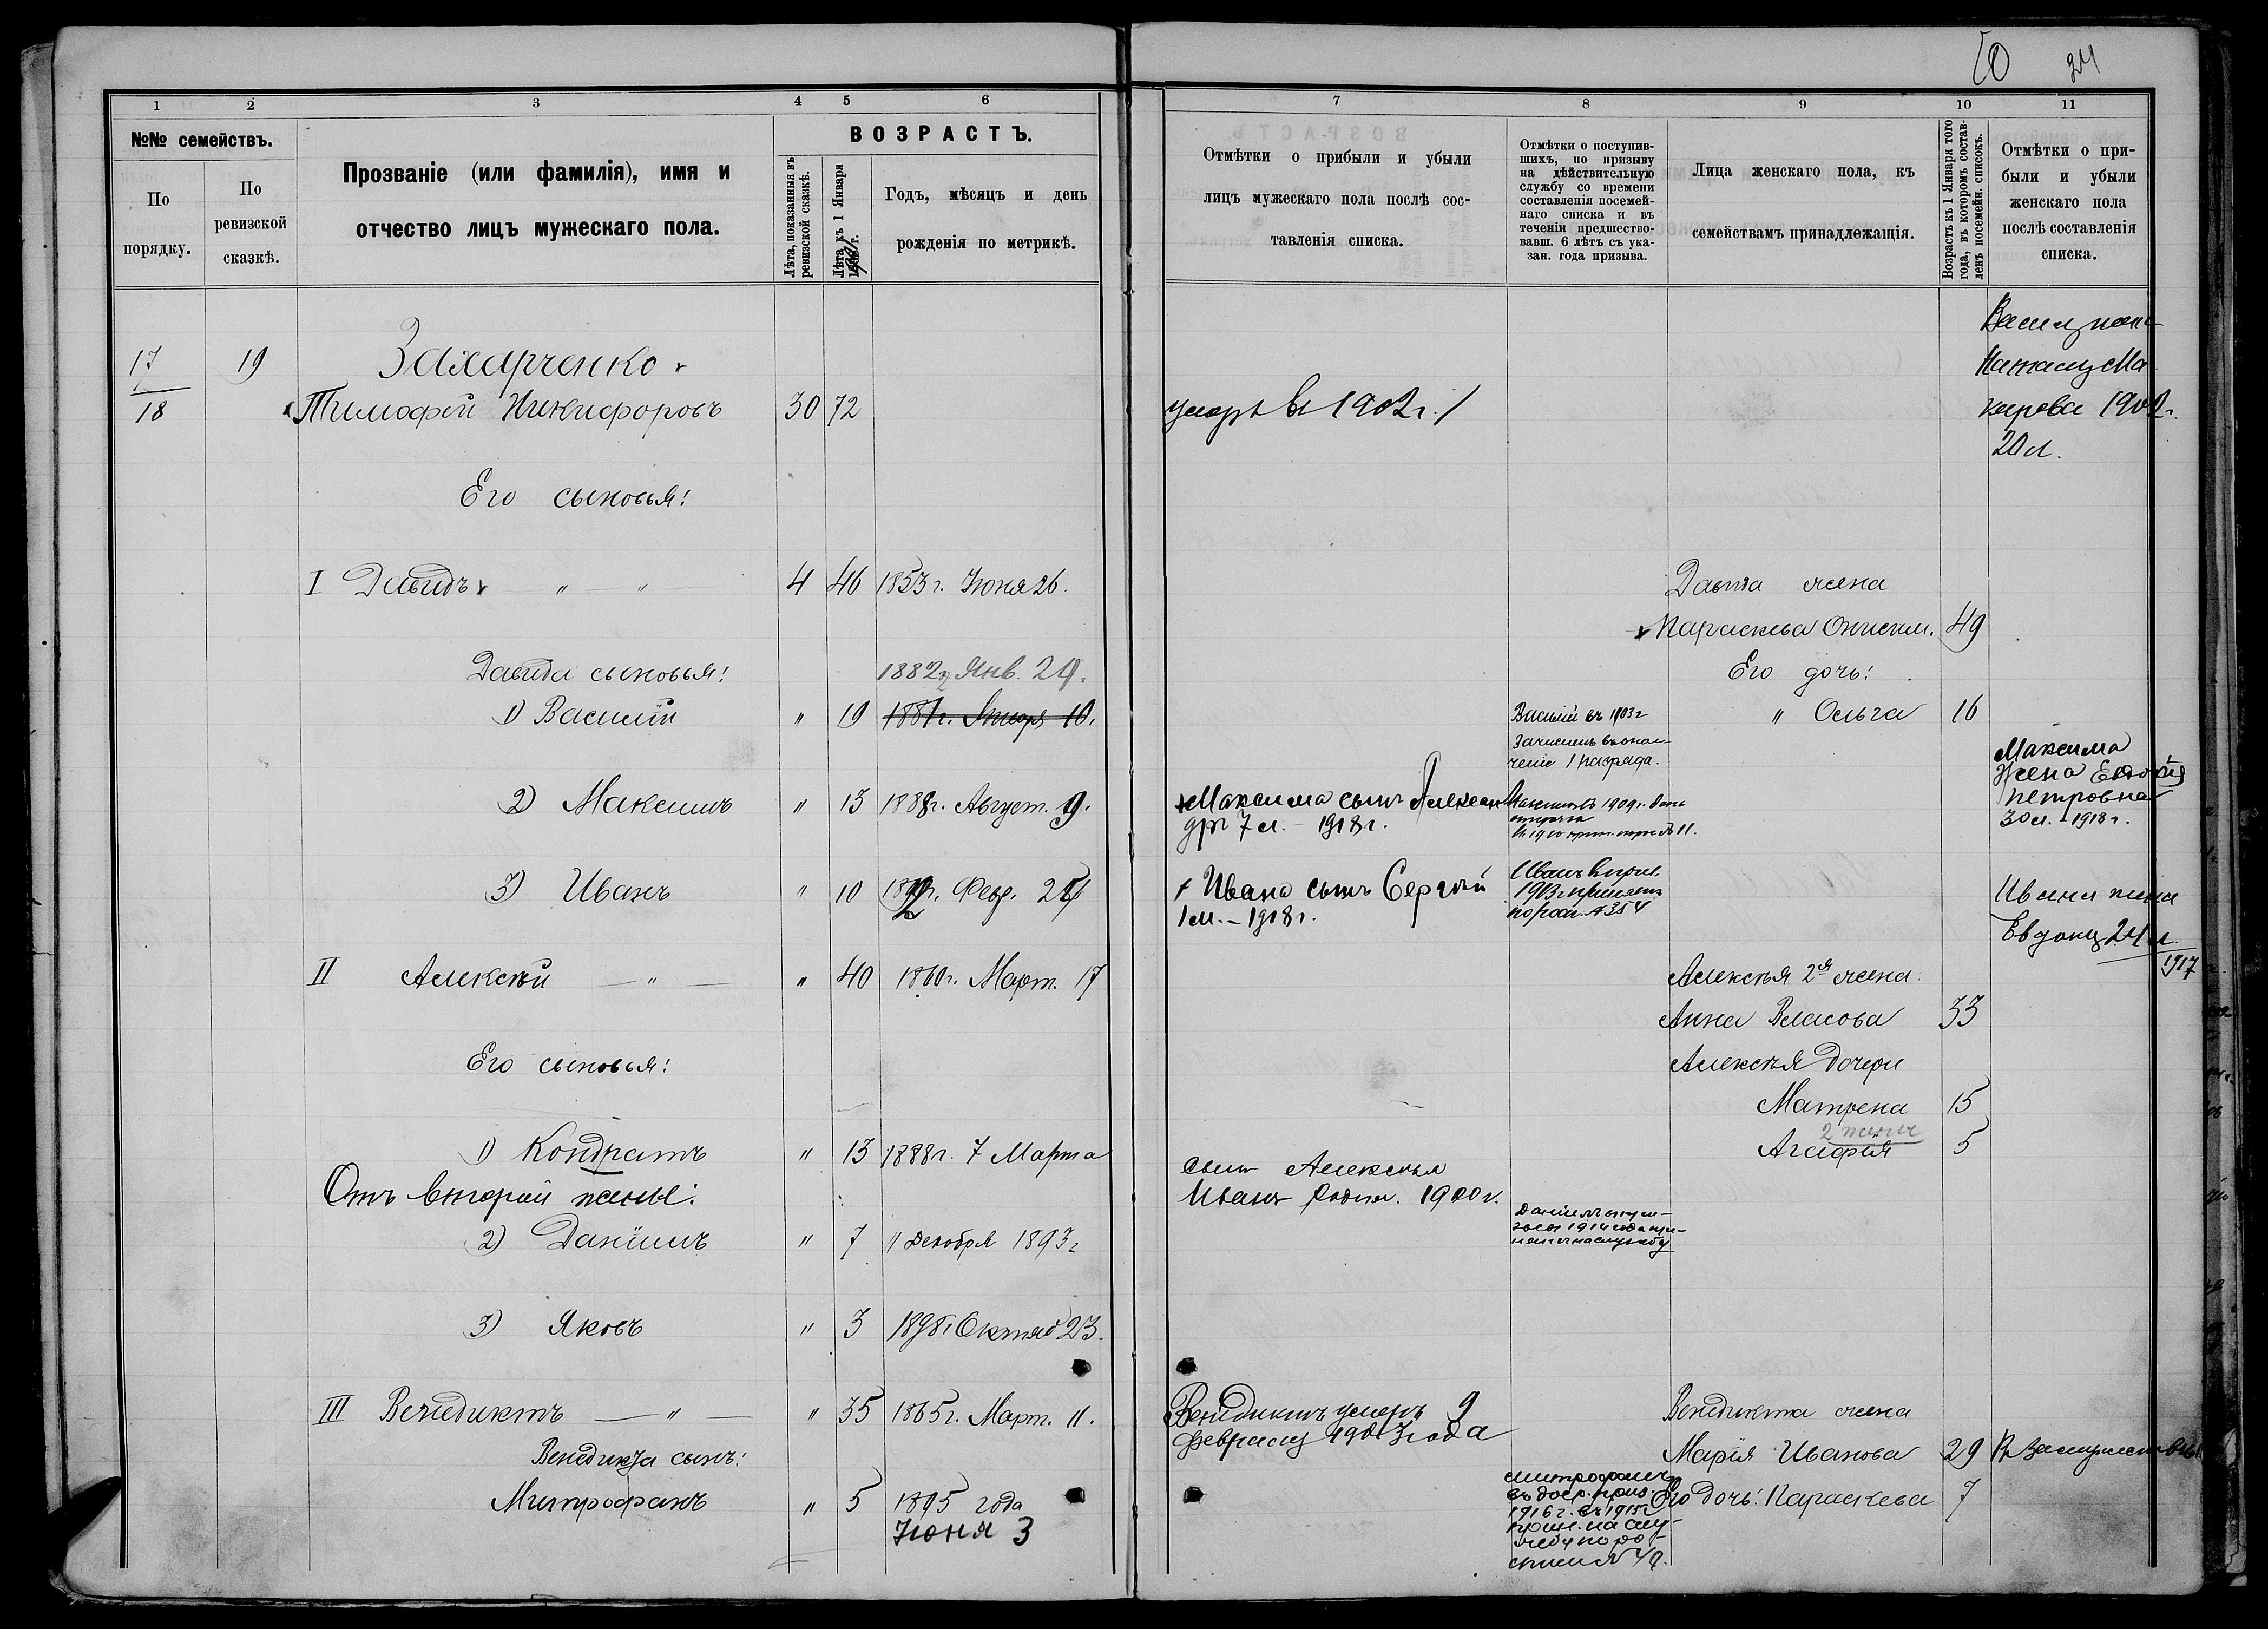 10 24
1 2 3 4 5 6
№№ семействъ.
По порядку.
По ревизской сказкѣ.
Прозваніе (или фамилія), имя и
отчество лицъ мужескаго пола.
ВОЗРАСТЪ.
Лѣта, показанныя въ
ревизской сказкѣ.
Лѣта къ 1 Января
Годъ, мѣсяцъ и день
рожденія по метрикѣ.
17 19 Захарченко
18 Тимофей Никифоровъ 30 72
Его сыновья:
I Давидъ " " 4 46 1853 г. Іюня 26.
Давида сыновья: 1882 г. Янв. 29.
1) Василій " 19 1881 г. Января 10.
2) Максимъ " 13 1888 г. Август. 9.
3) Иванъ " 10 Февр. 24
II Алексѣй — " — " 40 1860 г. Март. 17
Его сыновья:
1) Кондратъ " 13 1888 г. 7 Марта
Отъ второй жены:
2) Даніилъ " 7 11 Декобря 1893 г
3) Яковъ " 3 1898 г Октяб 23.
III Венедиктъ — " — " 35 1865 г. Март. 11.
Венедикта сынъ:
Митрофанъ " 5 1895 года
Іюня 3
7 8 9 10 11
Отмѣтки о прибыли и убыли
лицъ мужескаго пола послѣ сос-
тавленія списка.
Отмѣтки о поступив-
шихъ, по призыву
на дѣйствительную
службу со времени
составленія посемей-
наго списка и въ
теченіи предшество-
вавш. 6 лѣтъ съ ука-
зан. года призыва.
Лица женскаго пола, къ
семействамъ принадлежащія.
Возрастъ къ 1 Января того
года, въ которомъ состав-
ленъ посемейн. списокъ.
Отмѣтки о при-
были и убыли
женскаго пола
послѣ составленія
списка.
Васил жен
Наталія Ма
карова 1902 г.
20 л.
умеръ въ 1902 г.
Давида жена
Параскева Онисим. 49
Его дочь:
" Ольга 16
Василій въ 1903 г
Зачисленъ въ опол-
ченіе 1 разряда.
Максима
Жена Евдокія
Петровна
30 л. - 1918 г.
Максима сынъ Алексан
дръ 7 л. - 1918 г.
Максимъ 1909 г.
Ивана сынъ Сергѣй
1 м. - 1918 г.
Иванъ
1913 г принятъ
№ 354
Ивана жена
Евдокія 24 л.
1917
Алексѣя 2я жена.
Анна Власова 33
Алексѣя дочери
Матрена 15
2 жены
Агафія 5
сынъ Алексѣя
Иванъ родил. 1900 г.
Даніилъ
1914 года при-
нятъ на службу
Венедиктъ умеръ 9
февраля 1903 года
Венедикта жена
Марія Иванова 29 Въ замужествѣ
Его дочь: Параскева 7
Митрофанъ
въ доср. приз.
1916 г. въ 1915 г
прин. на слу-
№ 49.